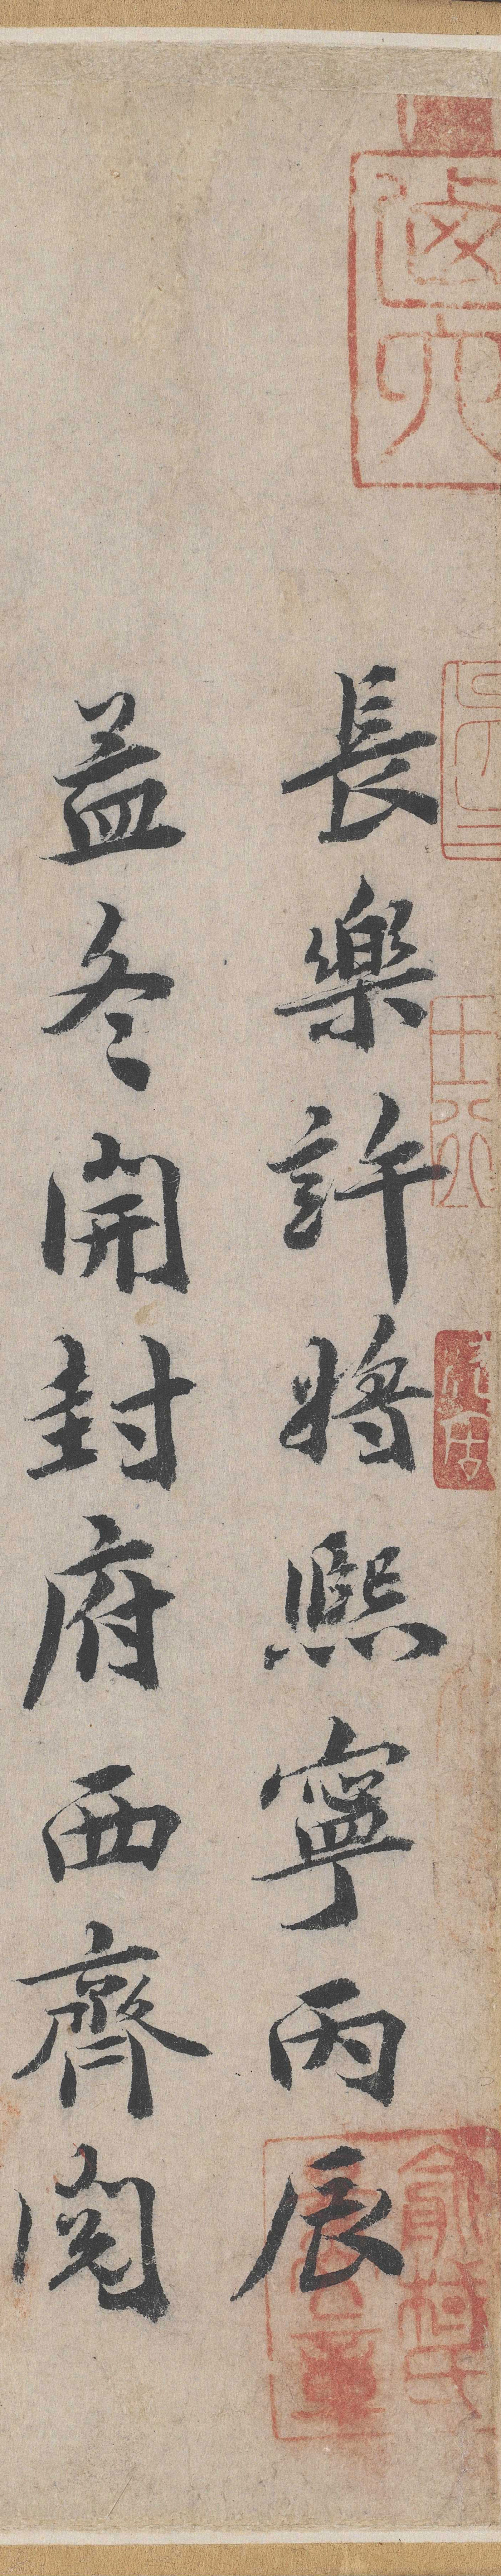 長樂許將熙寧丙辰
孟冬開封府西齋閱